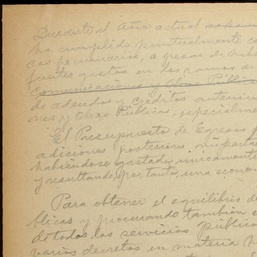 Durante el año actual
ha cumplido puntualmente
a pesar de
fuertes gastos en los ramos de
Comunicaciones y Obras Públicas
de adeudos y créditos anteriores
nes y Obras Públicas, especialmente
El Presupuesto de Egresos y
adiciones posteriores
habiéndose gastado únicamente
y resultando, por tanto, una econo
Para obtener el equilibrio de
blicas y procurando también
de todos los servicios públicos
varios decretos en materia